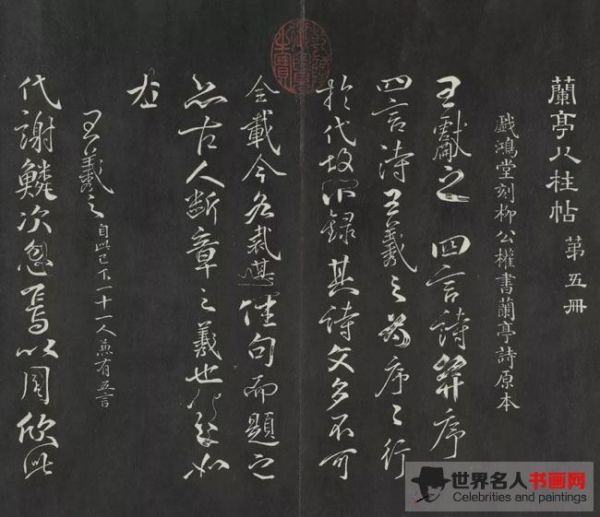 蘭亭八柱帖 第五冊
戲鴻堂刻柳公權書蘭亭詩原本
王獻之 四言詩并序
四言詩王羲之為序序行
於代故不錄其詩文多不可
全載今各裁其佳句而題之
亦古人斷章之義也
王羲之 自此已下一十一人兼有五言
代謝鱗次忽焉以周欣此
世界名人书画网
Celebrities and paintings